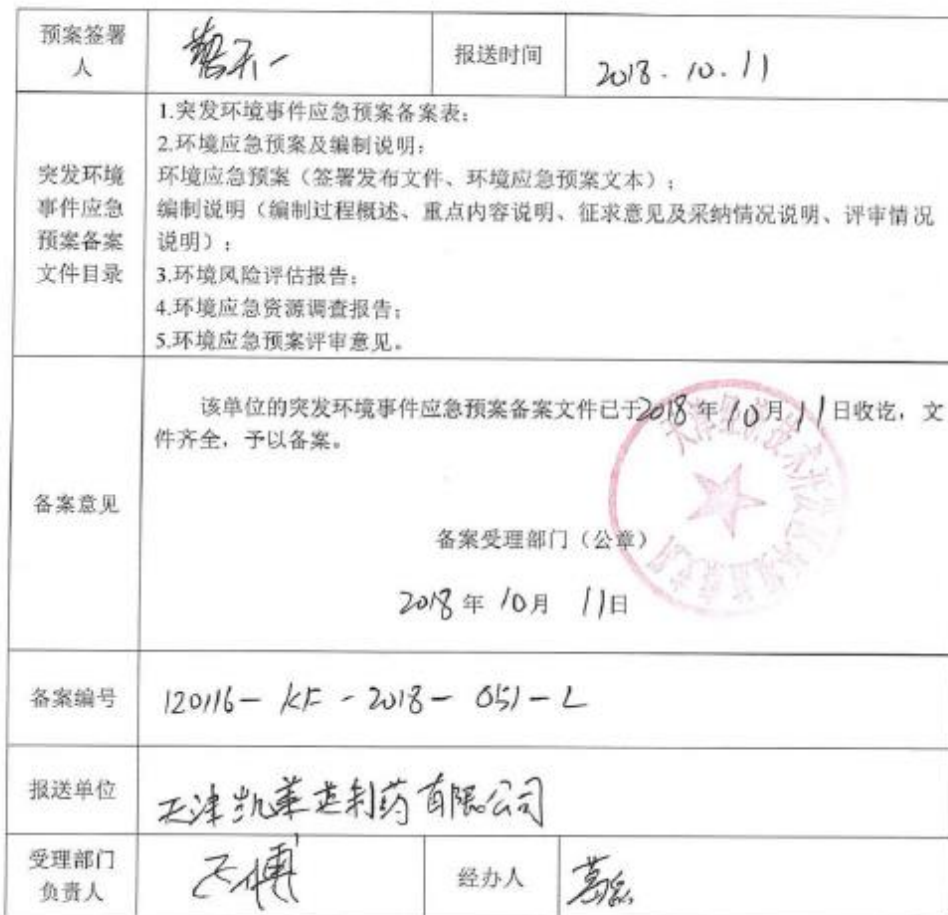 预案签署人
报送时间
2018.10.11
突发环境事件应急预案备案文件目录
1.突发环境事件应急预案备案表；
2.环境应急预案及编制说明；
环境应急预案（签署发布文件、环境应急预案文本）；
编制说明（编制过程概述、重点内容说明、征求意见及采纳情况说明、评审情况
说明）；
3.环境风险评估报告；
4.环境应急资源调查报告；
5.环境应急预案评审意见。
备案意见
该单位的突发环境事件应急预案备案文件已于2018年10月11日收讫，文
件齐全，予以备案。
备案受理部门（公章）
2018年10月11日
备案编号
120116-KF-2018-051-L
报送单位
天津凯莱英制药有限公司
受理部门
负责人
经办人